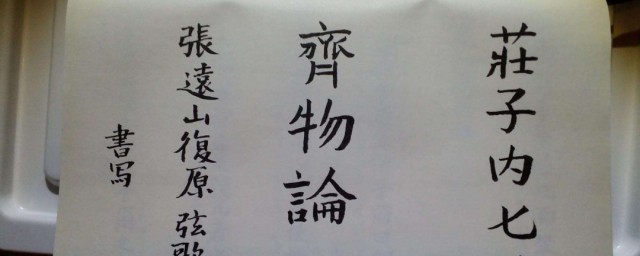 莊子内七
齊物論
張遠山復原 弦歌
書写